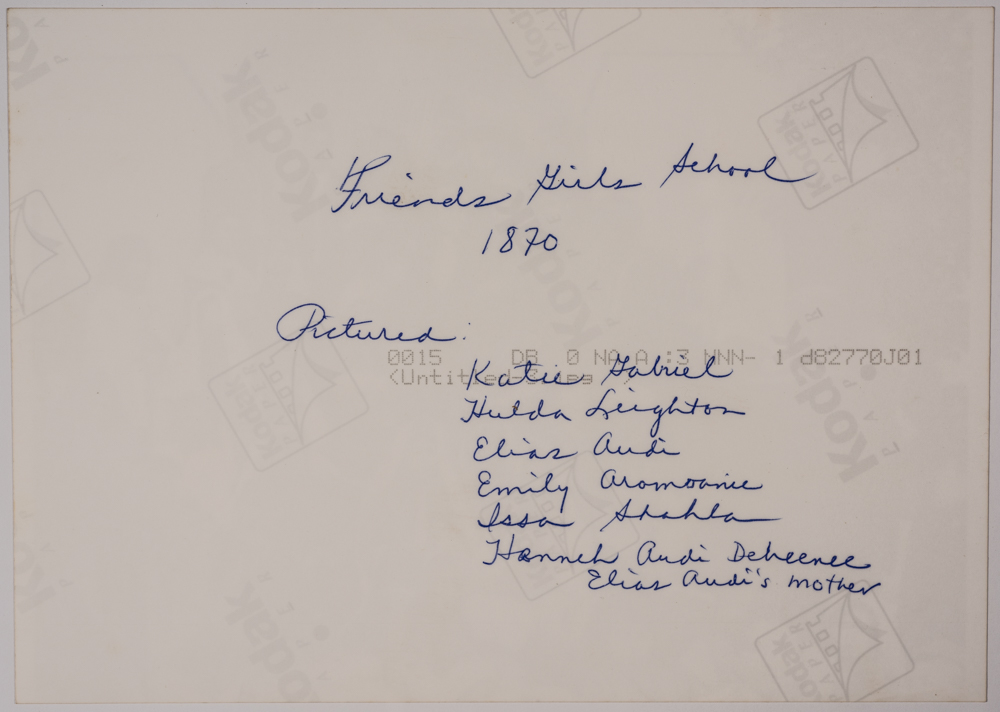 Friends Girls School
1870
Pictured:
0015 DB 0 NA A :3 NNN- 1 d82770J01
<Untitled
Katie Gabriel
Hulda Leighton
Elias Audi
Emily
Issa Shahla
Hanneh Audi Debeenee
Elias Audi's mother
Kodak
PAPER
Kodak
Kodak
PAPER
Kodak
Kodak
Kodak
PAPER